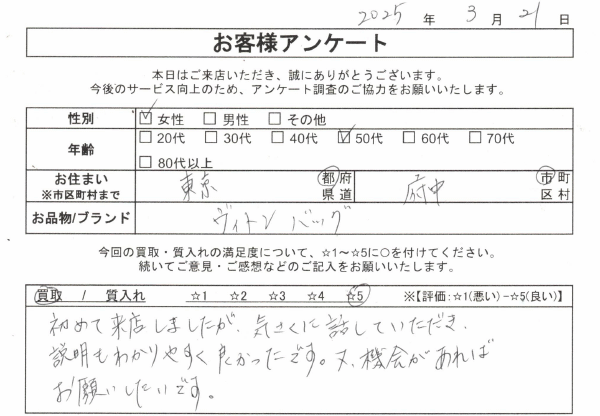 2025 年 3 月 21 日
お客様アンケート
本日はご来店いただき、誠にありがとうございます。
今後のサービス向上のため、アンケート調査のご協力をお願いいたします。
性別 ☑ 女性 □ 男性 □ その他
年齢 □ 20代 □ 30代 □ 40代 ☑ 50代 □ 60代 □ 70代
□ 80代以上
お住まい 東京 都府 府中 市町
※市区町村まで 県道 区村
お品物/ブランド ヴィトン バッグ
今回の買取・質入れの満足度について、☆1～☆5に○を付けてください。
続いてご意見・ご感想などのご記入をお願いいたします。
買取 / 質入れ ☆1 ☆2 ☆3 ☆4 ☆5 ※【評価:☆1(悪い)－☆5(良い)】
初めて来店しましたが、気さくに話していただき、
説明もわかりやすく良かったです。又、機会があれば
お願いしたいです。